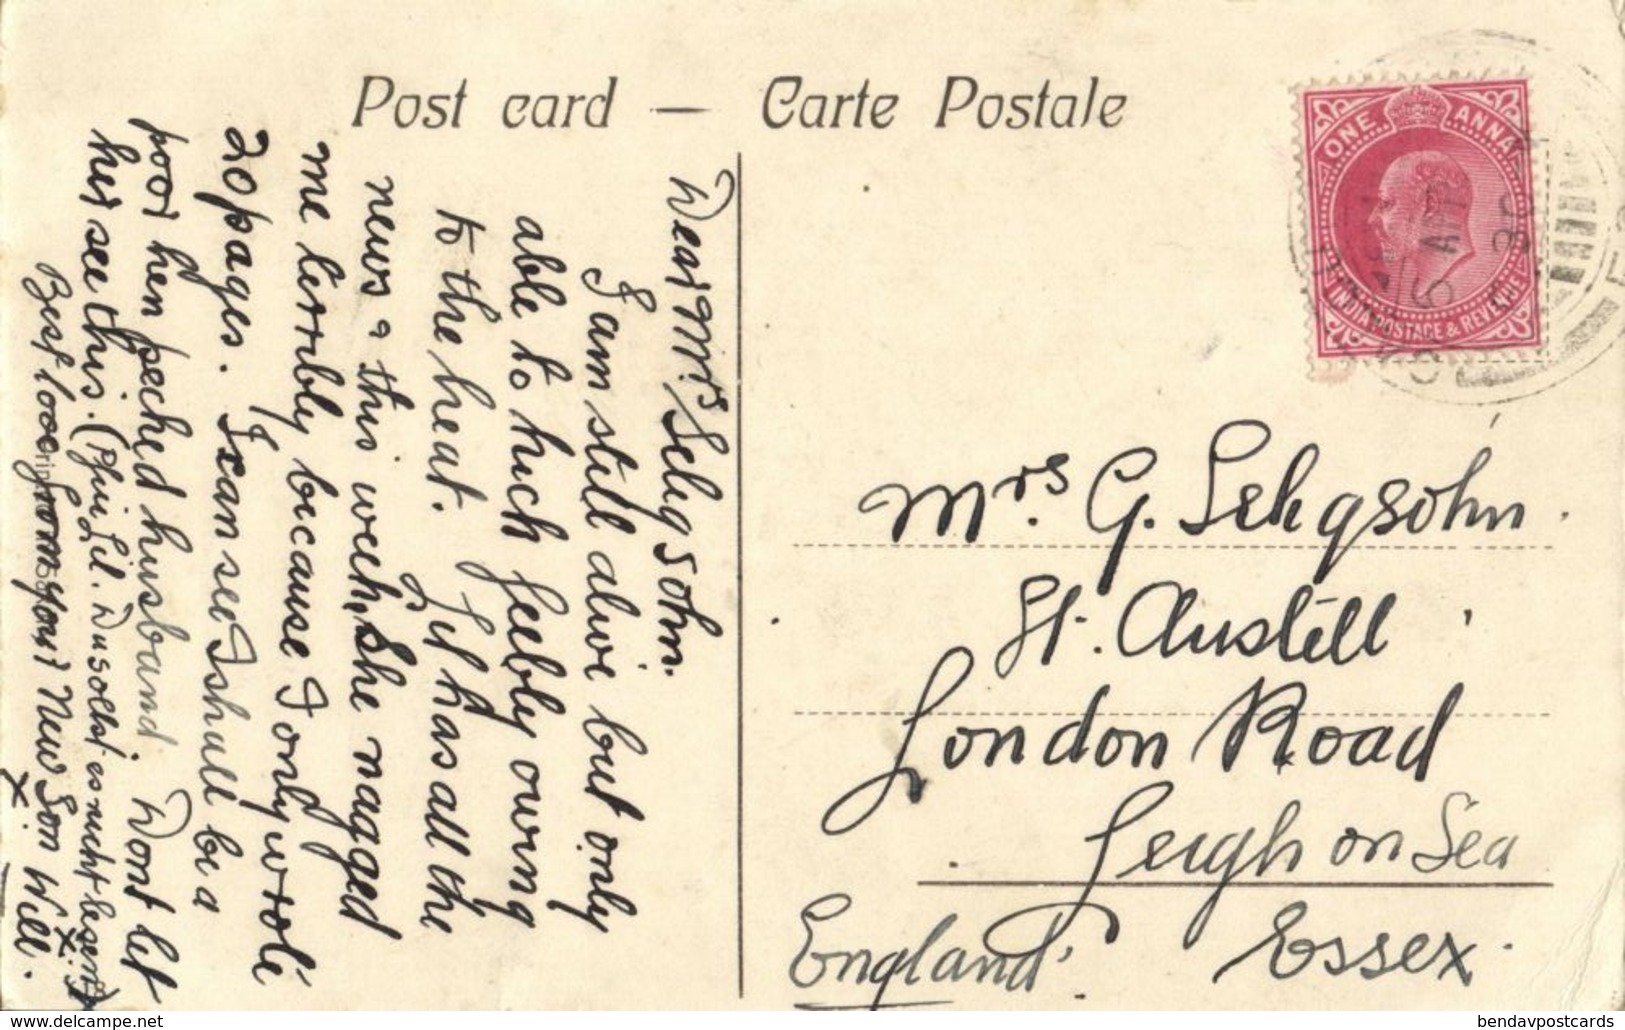 Post card — Carte Postale
ONE ANNA
INDIA POSTAGE & REVENUE
Dear Mrs. Seligsohn.
I am still alive but only
able to hick feebly owing
to the heat. Lil has all the
news & this week, She nagged
me terribly because I only wrote
20 pages. I can see I shall be a
poor hen pecked husband. Dont let
her see this. (Phui Lil. Du sollst es nicht lesen!)
Best love from your New Son Will.
x x x
Mrs. G. Seligsohn.
St. Austell
London Road
Leigh on Sea
Essex.
England.
www.delcampe.net
bendavpostcards